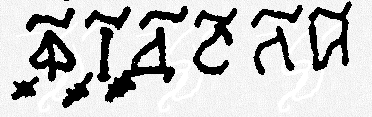 ҂ф҃ ҂і҃ ҂д҃ с҃ л҃ и҃